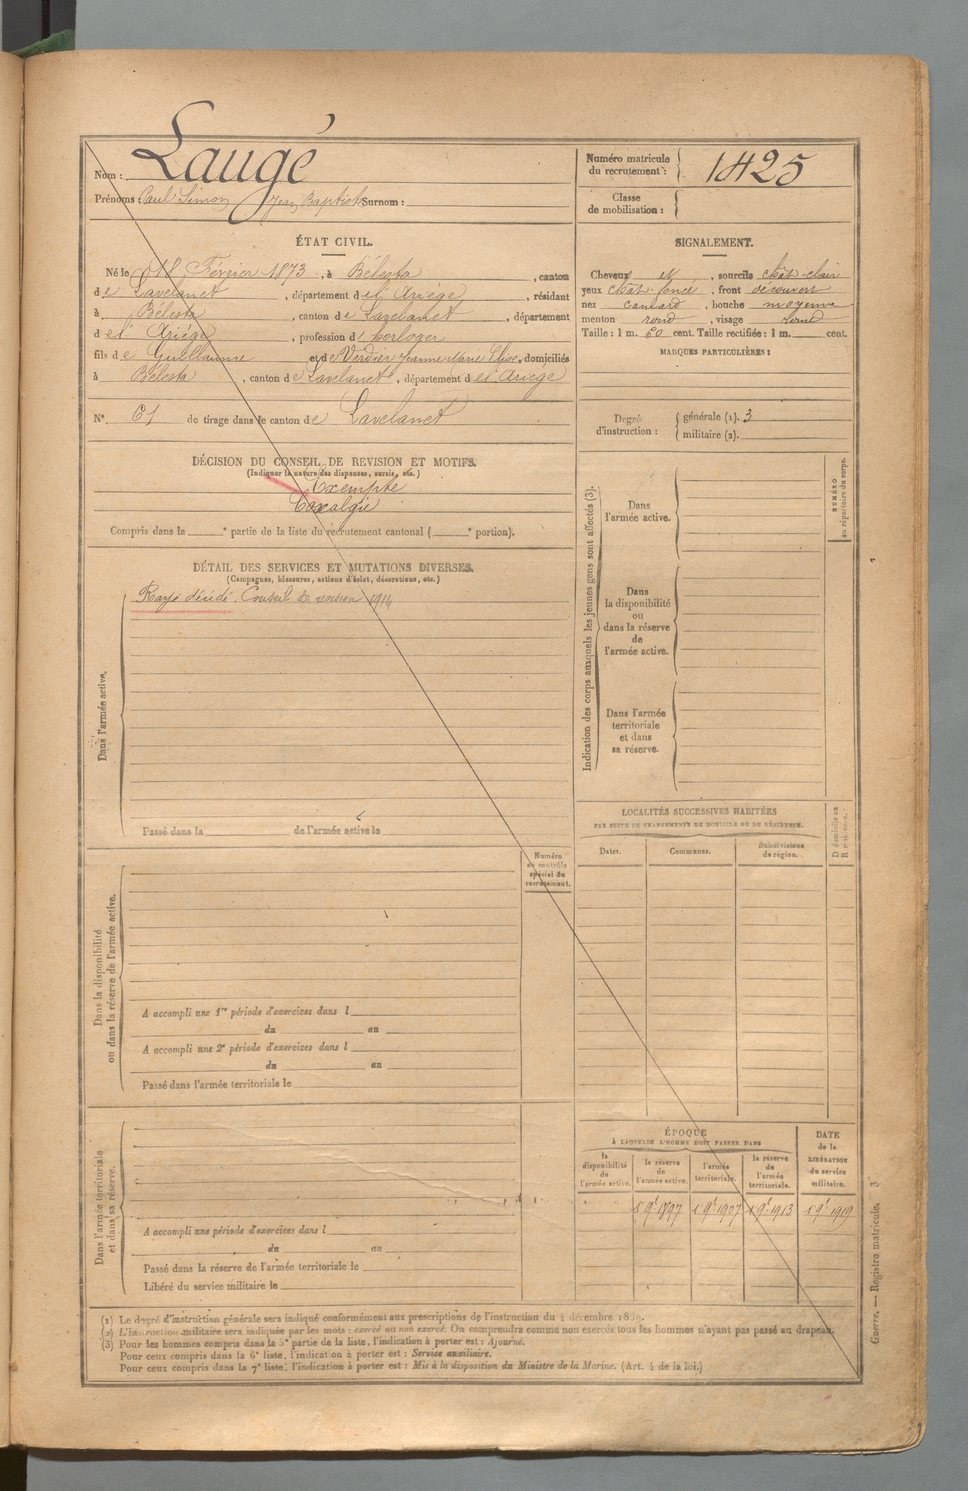 Nom : Laugé
Prénoms : Paul Simon Jean Baptiste Surnom :
Numéro matricule du recrutement : 1425
Classe de mobilisation :
ÉTAT CIVIL.
Né le 18 Février 1873, à Bélesta, canton
de Lavelanet, département de l'Ariège, résidant
à Bélesta, canton de Lavelanet, département
de l'Ariège, profession d'horloger
fils de Guillaume et de Verdier Jeanne Marie Elise, domiciliés
à Bélesta, canton de Lavelanet, département de l'Ariège
N° 61 de tirage dans le canton de Lavelanet
SIGNALEMENT.
Cheveux et, sourcils chât-clair
yeux chât-foncé, front découvert
nez camard, bouche moyenne
menton rond, visage rond
Taille : 1 m. 60 cent. Taille rectifiée : 1 m. cent.
MARQUES PARTICULIÈRES :
Degré d'instruction : générale (1). 3
militaire (2).
DÉCISION DU CONSEIL DE REVISION ET MOTIFS.
(Indiquer la nature des dispenses, sursis, etc.)
Exempté
Coxalgie
Compris dans la e partie de la liste du recrutement cantonal ( e portion).
DÉTAIL DES SERVICES ET MUTATIONS DIVERSES.
(Campagnes, blessures, actions d'éclat, décorations, etc.)
Rayé décédé. Conseil de revision 1914
Dans l'armée active.
Passé dans la de l'armée active le
Numéro au contrôle spécial du recrutement.
Dans la disponibilité
ou dans la réserve de l'armée active.
A accompli une 1re période d'exercices dans l
du au
A accompli une 2e période d'exercices dans l
du au
Passé dans l'armée territoriale le
Dans l'armée territoriale
et dans sa réserve.
A accompli une période d'exercices dans l
du au
Passé dans la réserve de l'armée territoriale le
Libéré du service militaire le
Indication des corps auxquels les jeunes gens sont affectés (3).
NUMÉRO au répertoire du corps.
Dans
l'armée active.
Dans
la disponibilité
ou
dans la réserve
de
l'armée active.
Dans l'armée
territoriale
et dans
sa réserve.
LOCALITÉS SUCCESSIVES HABITÉES
PAR SUITE DE CHANGEMENTS DE DOMICILE OU DE RÉSIDENCE.
Dates. Communes. Subdivisions de région. D domicile ou R résidence.
ÉPOQUE
À LAQUELLE L'HOMME DOIT PASSER DANS
la disponibilité de l'armée active. la réserve de l'armée active. l'armée territoriale. la réserve de l'armée territoriale.
DATE de la LIBÉRATION du service militaire.
1 9e 1897 1 9e 1907 1 9e 1913 1 9e 1919
(1) Le degré d'instruction générale sera indiqué conformément aux prescriptions de l'instruction du 4 décembre 1889.
(2) L'instruction militaire sera indiquée par les mots : exercé ou non exercé. On comprendra comme non exercés tous les hommes n'ayant pas passé au drapeau.
(3) Pour les hommes compris dans la 5e partie de la liste, l'indication à porter est : Ajourné.
Pour ceux compris dans la 6e liste, l'indication à porter est : Service auxiliaire.
Pour ceux compris dans la 7e liste, l'indication à porter est : Mis à la disposition du Ministre de la Marine. (Art. 4 de la loi.)
Guerre. — Registre matricule. 3